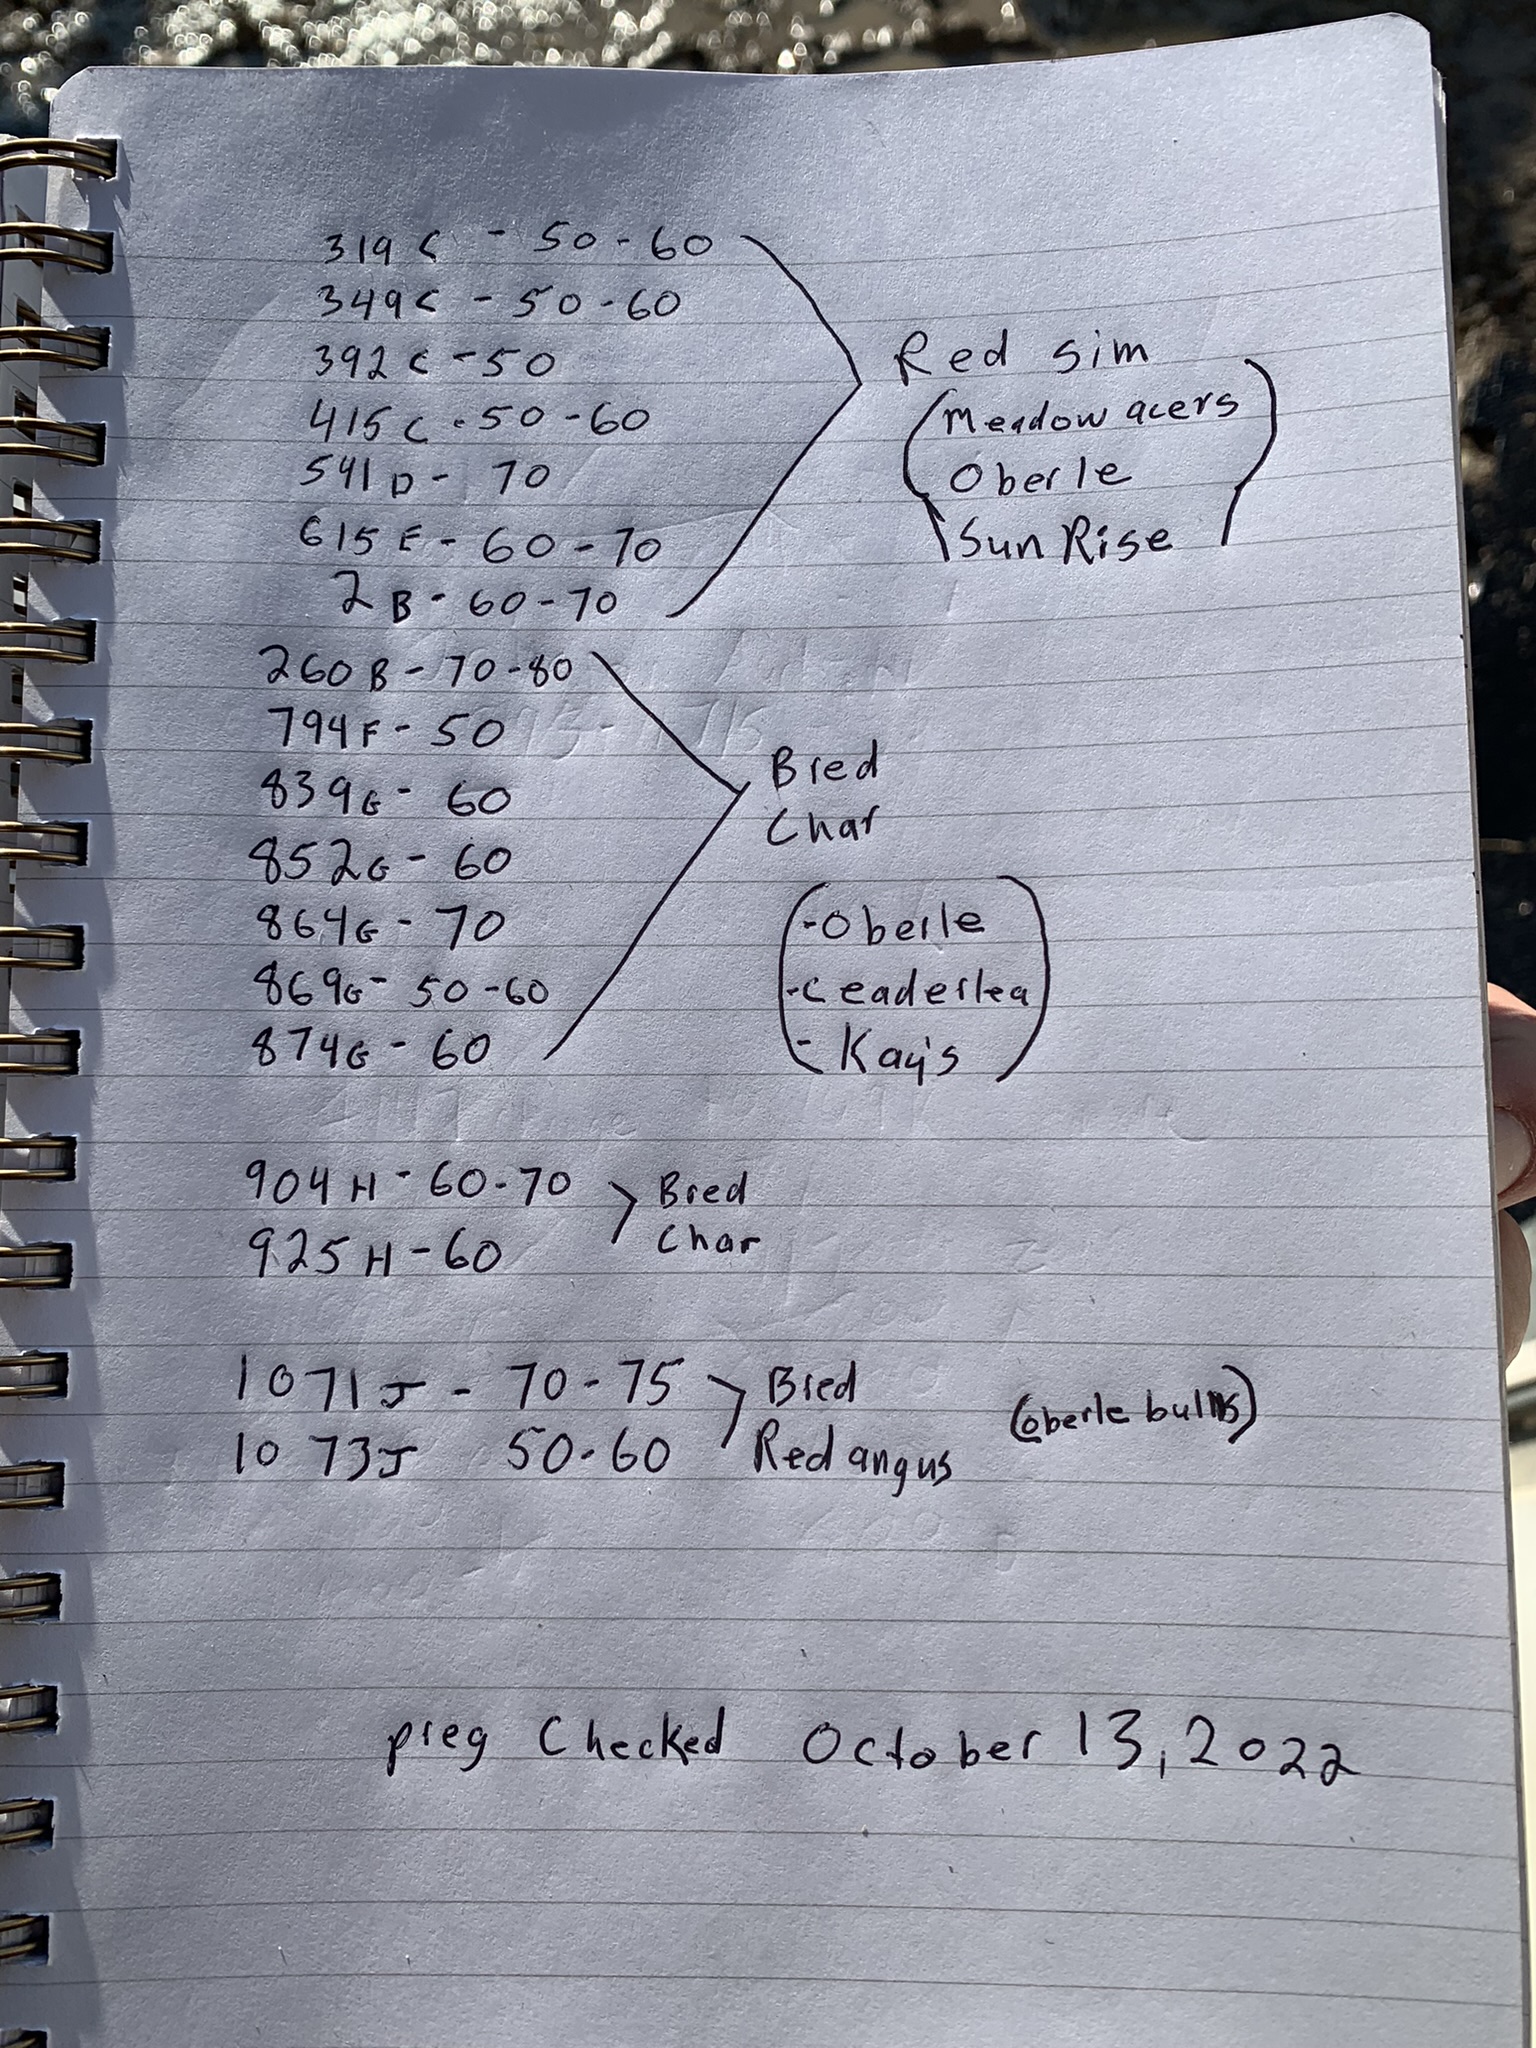 319C - 50-60
349C - 50-60
392C - 50
415C - 50-60
541D - 70
615E - 60-70
2B - 60-70
Red Sim
(Meadow acers
Oberle
SunRise)
260B - 70-80
794F - 50
839G - 60
852G - 60
864G - 70
869G - 50-60
874G - 60
Bred
Char
(-Oberle
-Ceaderlea
- Kay's)
904H - 60-70
925H - 60
Bred
Char
1071J - 70-75
1073J 50-60
Bred
Red angus
(oberle bulls)
preg Checked October 13, 2022